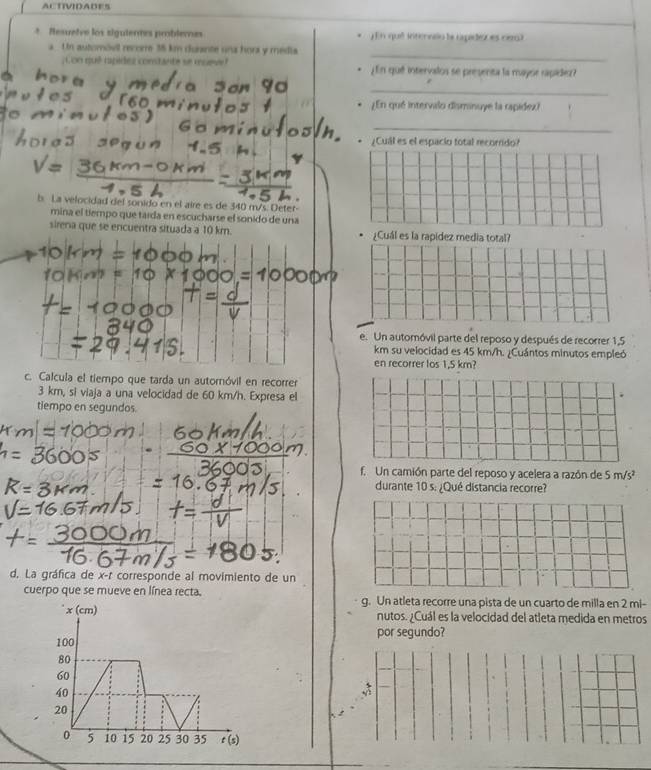 ACTIVIDADES
Resuelve los siguientes problemas
a. Un automóvil recorre 36 km durante una hora y media
¿Con qué rapidez constante se mueve?
hora y media son 90
(60 minutos +
30 minutos)
60 minutos/h.
horas según 1.5 h.
V = 36 Km - 0 Km / 1.5 h = 3 Km / 1.5 h.
b. La velocidad del sonido en el aire es de 340 m/s. Deter-
mina el tiempo que tarda en escucharse el sonido de una
sirena que se encuentra situada a 10 km.
10 km = 1000 m.
10 Km = 10 x 1000 = 10000m
t = 10000 / 340
t = d / V
= 29.41 s.
c. Calcula el tiempo que tarda un automóvil en recorrer
3 km, si viaja a una velocidad de 60 km/h. Expresa el
tiempo en segundos.
Km = 1000 m
60 Km/h.
h = 3600 s
60 x 1000 m / 3600 s
= 16.67 m/s
R = 3 Km.
V = 16.67 m/s
t = d / V
t = 3000 m / 16.67 m/s = 180 s.
d. La gráfica de x-t corresponde al movimiento de un
cuerpo que se mueve en línea recta.
x (cm)
100
80
60
40
20
0 5 10 15 20 25 30 35 t (s)
¿En qué intervalo la rapidez es cero?
¿En qué intervalos se presenta la mayor rapidez?
¿En qué intervalo disminuye la rapidez?
¿Cuál es el espacio total recorrido?
¿Cuál es la rapidez media total?
e. Un automóvil parte del reposo y después de recorrer 1,5
km su velocidad es 45 km/h. ¿Cuántos minutos empleó
en recorrer los 1,5 km?
f. Un camión parte del reposo y acelera a razón de 5 m/s²
durante 10 s. ¿Qué distancia recorre?
g. Un atleta recorre una pista de un cuarto de milla en 2 mi-
nutos. ¿Cuál es la velocidad del atleta medida en metros
por segundo?